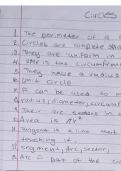 Circles
1. The perimeter of a
2. Circles are complete
3. They are uniform in
4. the circumfrence
5. They have a radius
6. Unit Circle
7. It can be used to m
8. radius, diameter,
9. Their are
10. Area is πr²
11. Tangent is a line that
touching it
12. Segment, Arc, sector,
13. Arc = Part of the cir